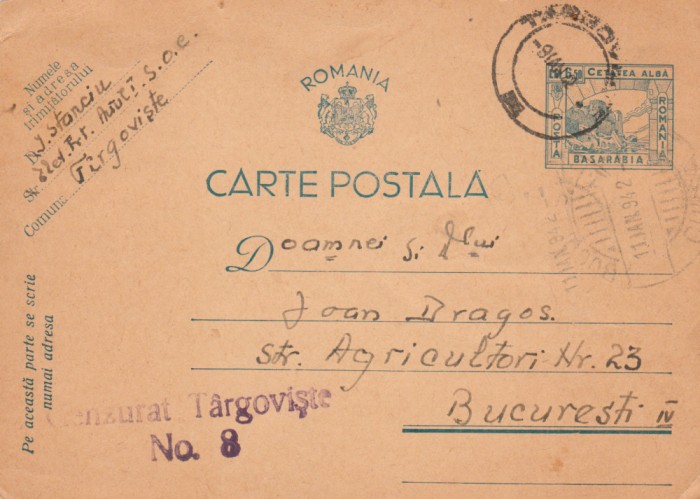 Numele
și adresa
trimițătorului
I. Stanciu
Târgoviște
Str.
Comuna
ROMANIA
CARTE POSTALA
TÂRGOVIȘTE
CETATEA ALBĂ
POSTA
ROMANIA
BASARABIA
11 IAN. 942
Doamnei și Dlui
Ioan Dragos.
str. Agricultori Nr. 23
Bucuresti IV
Pe această parte se scrie
numai adresa
Cenzurat Târgoviște
No. 8